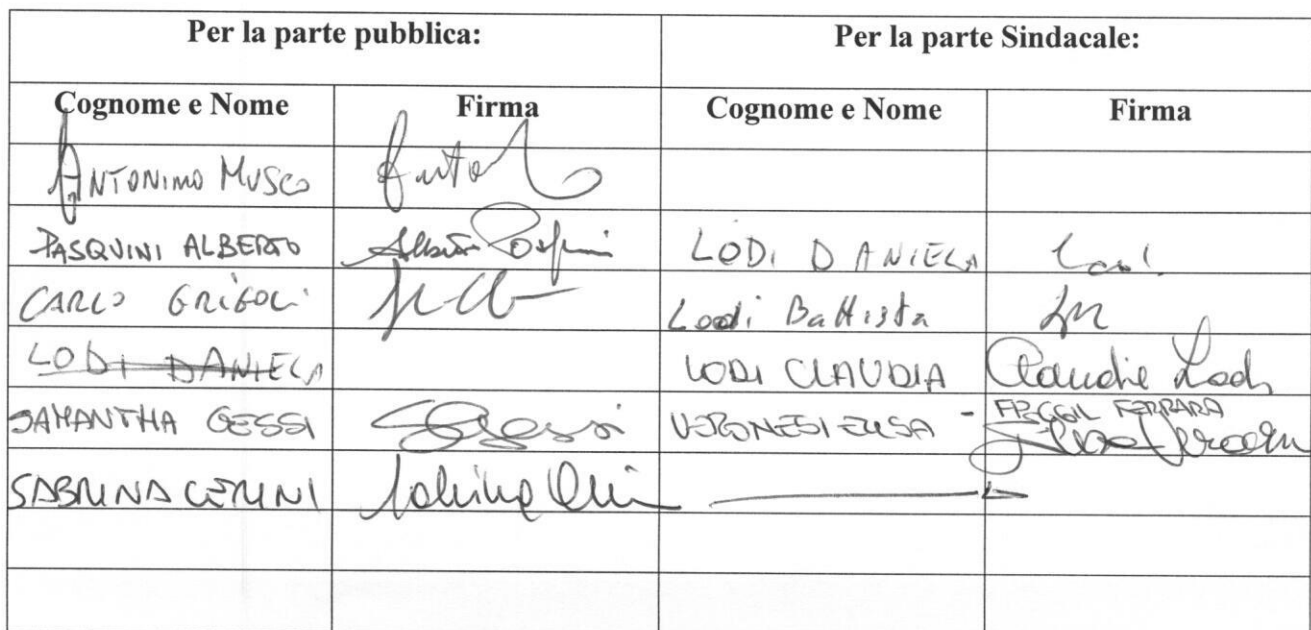 Per la parte pubblica: Per la parte Sindacale:
Cognome e Nome Firma Cognome e Nome Firma
ANTONINO MUSCO
PASQUINI ALBERTO LODI DANIELA
CARLO GRIGOLI Lodi Battista
LODI DANIELA LODI CLAUDIA Claudia Lodi
SAMANTHA GESSI SGessi VERONESI ELISA - FP CGIL FERRARA
SABRINA CERINI